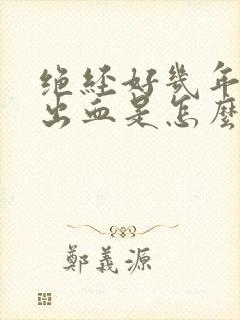 绝经好幾年
出血是怎麼
鄭義源